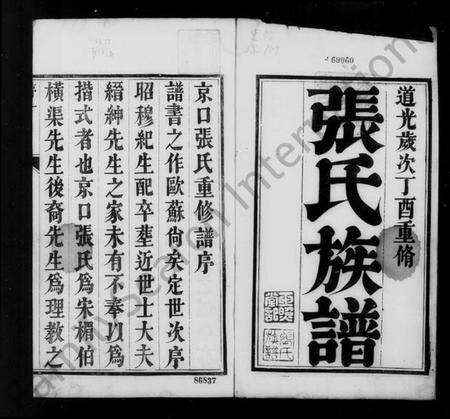 道光歲次丁酉重脩
張氏族譜
69060
京口張氏重修譜序
譜書之作歐蘇尚矣定世次序
昭穆紀生配卒塟近世士大夫
縉紳先生之家未有不奉以爲
揩式者也京口張氏爲宋楣伯
橫渠先生後裔先生爲理教之
86837